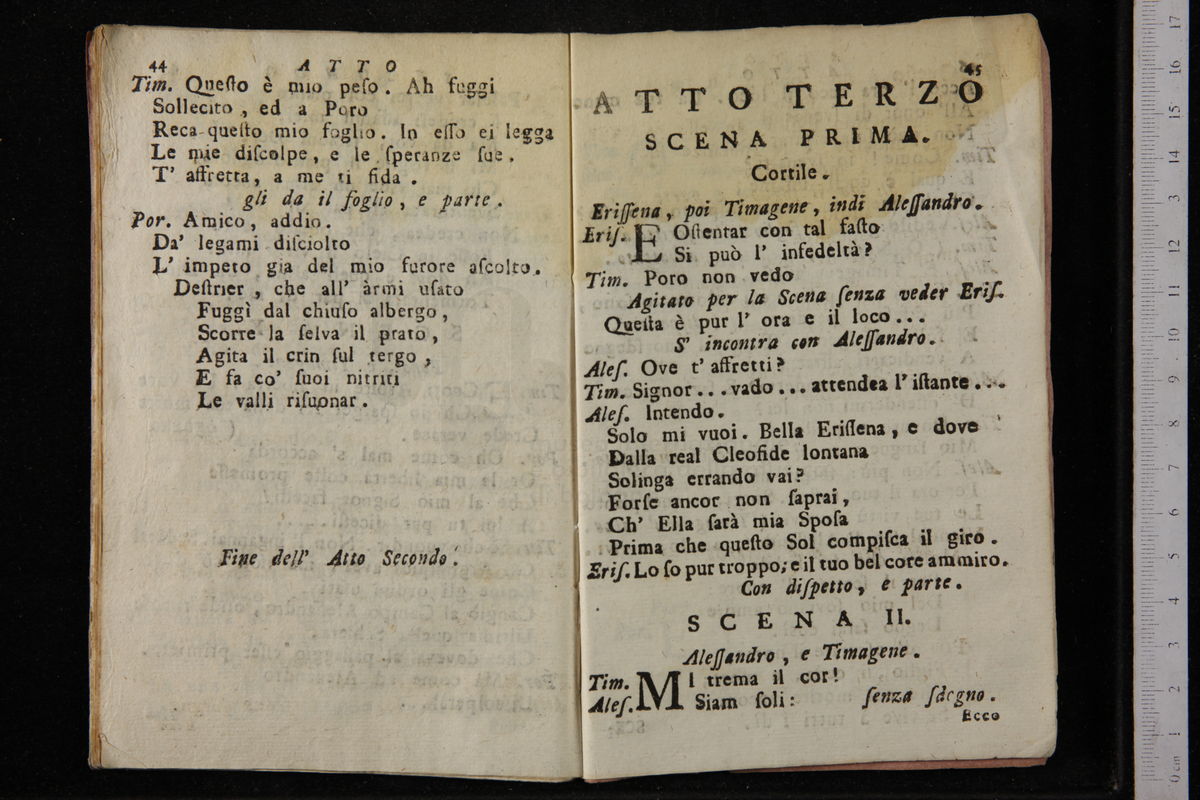 44 ATTO
Tim. Queſto è mio peſo. Ah fuggi
Sollecito, ed a Poro
Reca queſto mio foglio. In eſſo ei legga
Le mie diſcolpe, e le ſperanze ſue.
T' affretta, a me ti fida.
gli da il foglio, e parte.
Por. Amico, addio.
Da' legami diſciolto
L' impeto gia del mio furore aſcolto.
Deſtrier, che all' àrmi uſato
Fuggì dal chiuſo albergo,
Scorre la ſelva il prato,
Agita il crin ſul tergo,
E fa co' ſuoi nitriti
Le valli riſuonar.
Fine dell' Atto Secondo.
45
ATTO TERZO
SCENA PRIMA.
Cortile.
Eriſſena, poi Timagene, indi Aleſſandro.
Eriſ. E Oſtentar con tal faſto
Si può l' infedeltà?
Tim. Poro non vedo
Agitato per la Scena ſenza veder Eriſ.
Queſta è pur l' ora e il loco...
S' incontra con Aleſſandro.
Aleſ. Ove t' affretti?
Tim. Signor... vado... attendea l' iſtante...
Aleſ. Intendo.
Solo mi vuoi. Bella Eriſſena, e dove
Dalla real Cleofide lontana
Solinga errando vai?
Forſe ancor non ſaprai,
Ch' Ella ſarà mia Spoſa
Prima che queſto Sol compiſca il giro.
Eriſ. Lo ſo pur troppo; e il tuo bel core ammiro.
Con diſpetto, e parte.
SCENA II.
Aleſſandro, e Timagene.
Tim. MI trema il cor!
Aleſ. Siam ſoli: ſenza ſdegno.
Ecco